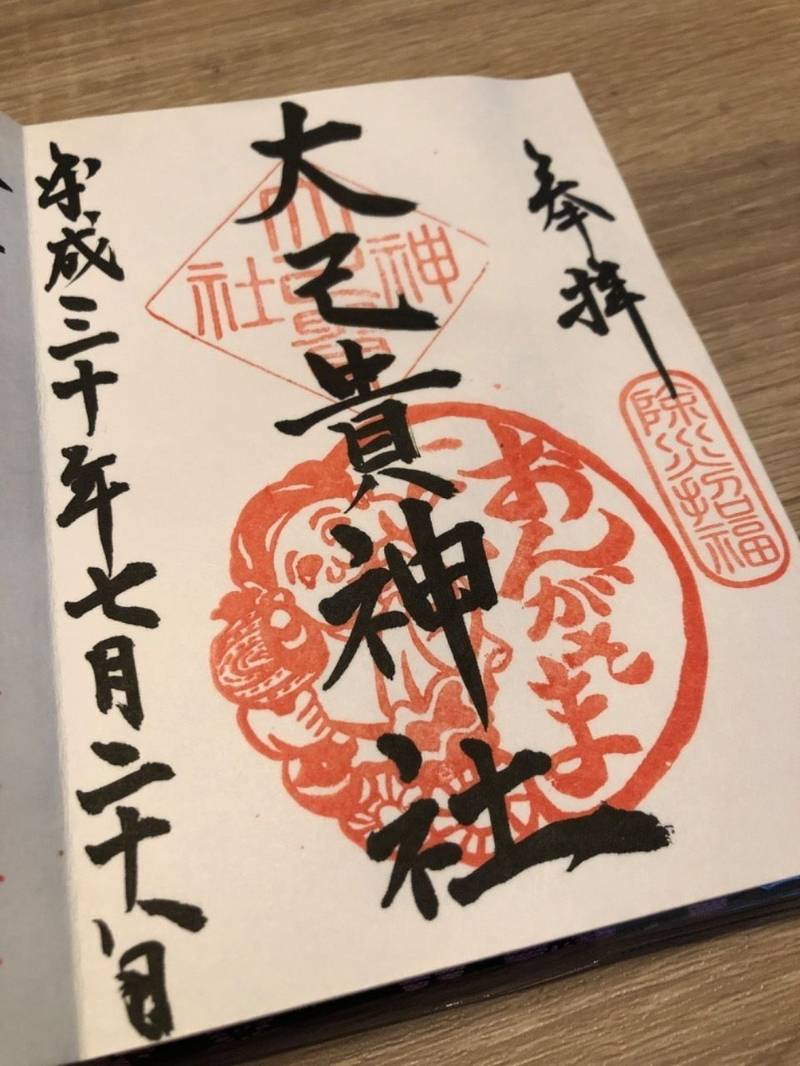 奉拝
除災招福
大己貴神社
大己貴神社
おんがさま
平成三十年七月二十八日